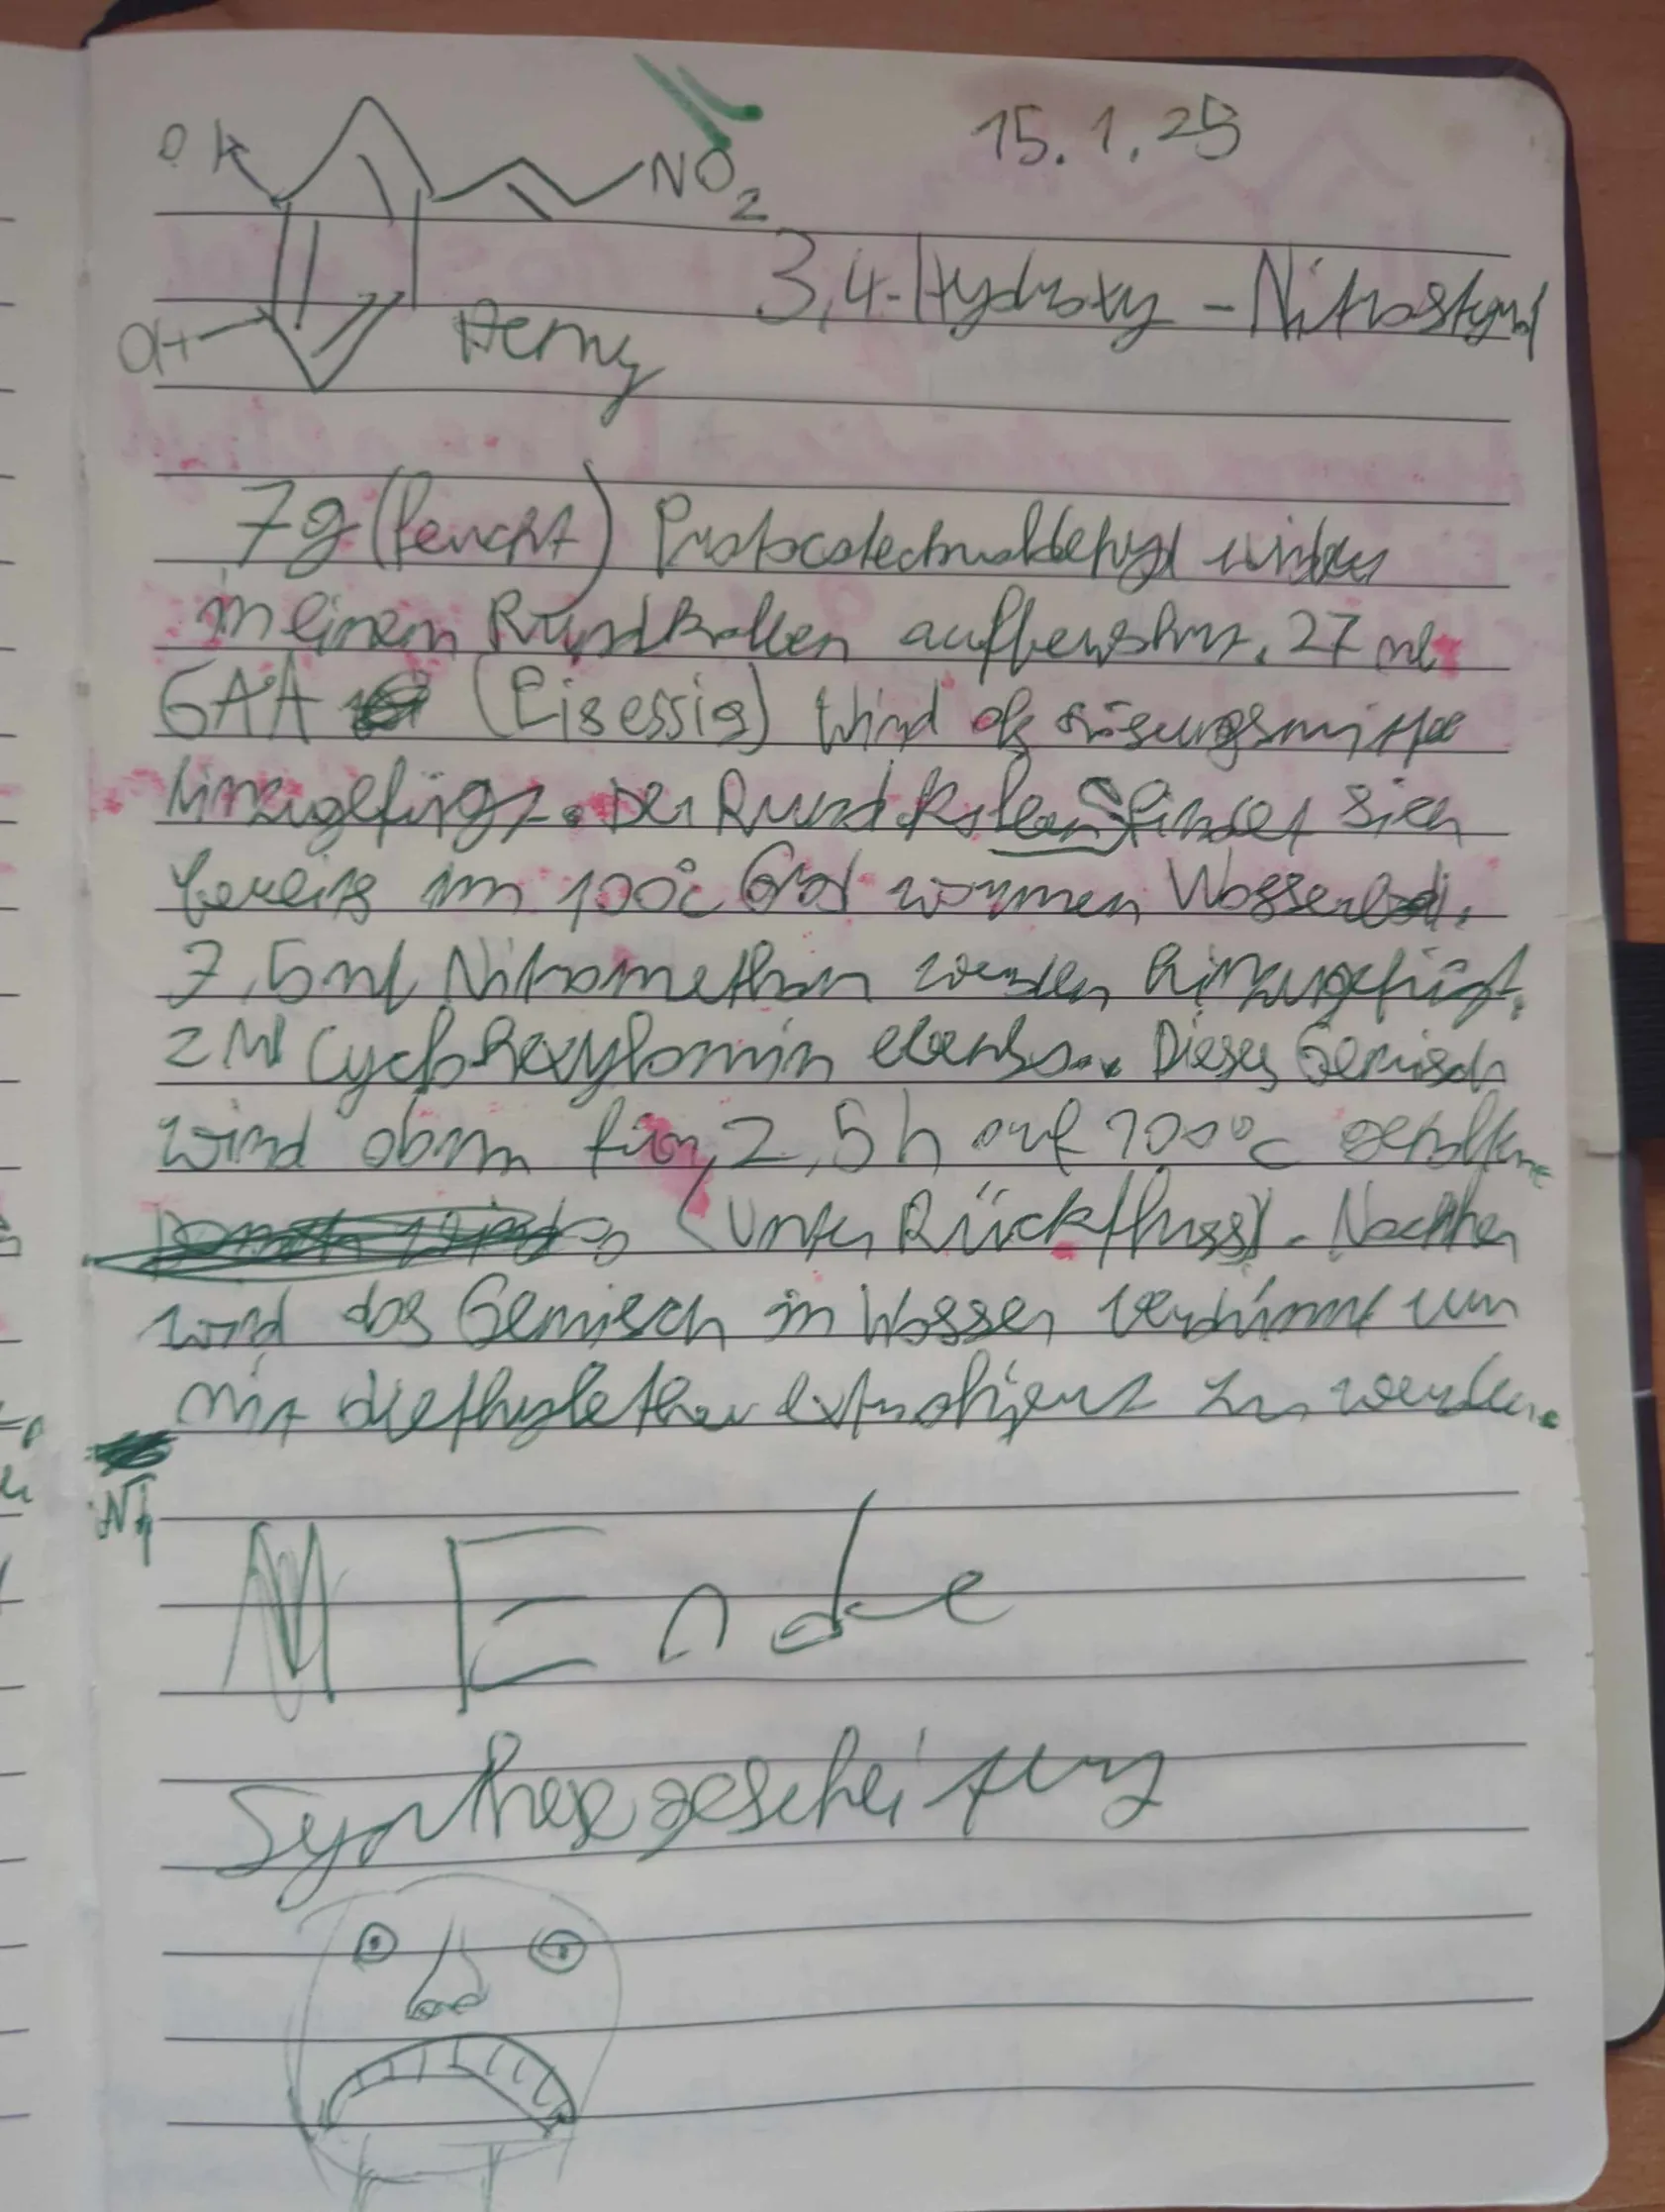 OH
NO2
15.1.25
3,4-Hydroxy-Nitrostyrol
OH
Henry
7g (feucht) Protocatechualdehyd wurden
in einem Rundkolben aufbewahrt. 27 ml
GAA (Eisessig) wird als Lösungsmittel
hinzugefügt. Der Rundkolben findet sich
bereits im 100°C Grad warmen Wasserbad.
7,5ml Nitromethan werden hinzugefügt.
2 Ml Cyclohexylamin ebenso. Dieses Gemisch
wird für 2,5h auf 100°C gehalten
(unter Rückfluss). Nachher
wird das Gemisch in Wasser verdünnt um
mit diethylether extrahiert zu werden.
Ende
Synthese gescheitert